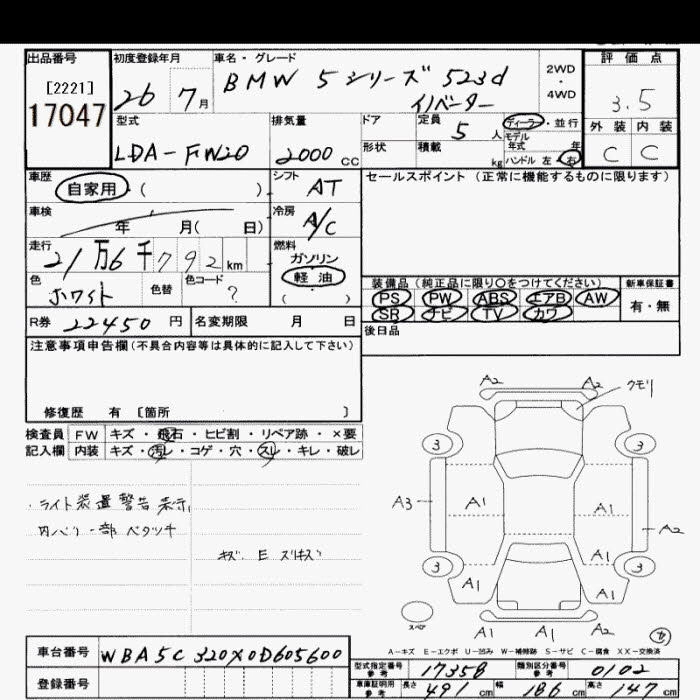 出品番号
[2221]
17047
初度登録年月
26 7月
車名・グレード
BMW 5シリーズ 523d
イノベーター
2WD
・
4WD
評価点
3.5
外装 内装
C C
型式
LDA-FW20
排気量
2000 CC
ドア
形状
定員
5 人
積載
kg
ディーラー・並行
モデル
年式 年
ハンドル 左 右
車歴
自家用 ( )
シフト
AT
セールスポイント (正常に機能するものに限ります)
車検
年 月( 日)
冷房
A/C
走行
21万6千792km
燃料
ガソリン
軽油
( )
色
ホワイト
色替
色コード
?
装備品 (純正品に限り○をつけてください)
PS PW ABS エアB AW
SR ナビ TV カワ
新車保証書
有・無
R券 22450 円
名変期限 月 日
後日品
注意事項申告欄 (不具合内容等は具体的に記入して下さい)
修復歴 有 〔箇所 〕
検査員
記入欄
FW キズ・飛石・ヒビ割・リペア跡・×要
内装 キズ・汚レ・コゲ・穴・スレ・キレ・破レ
・ライト装置警告表示
内バリ一部ベタツキ
キズ E ズリキズ
A2 A2 クモリ
3 3
A3 A1 A1
A2
A1
3 3
A1 A1
スペア
A1 A1 A2
A-キズ E-エクボ U-凹み W-補修跡 S-サビ C-腐食 XX-交換済
車台番号
WBA5C320X0D605600
登録番号
型式指定番号
参考
17358
類別区分番号
参考
0102
車庫証明用
参考
長さ 491 cm 幅 186 cm 高さ 147 cm